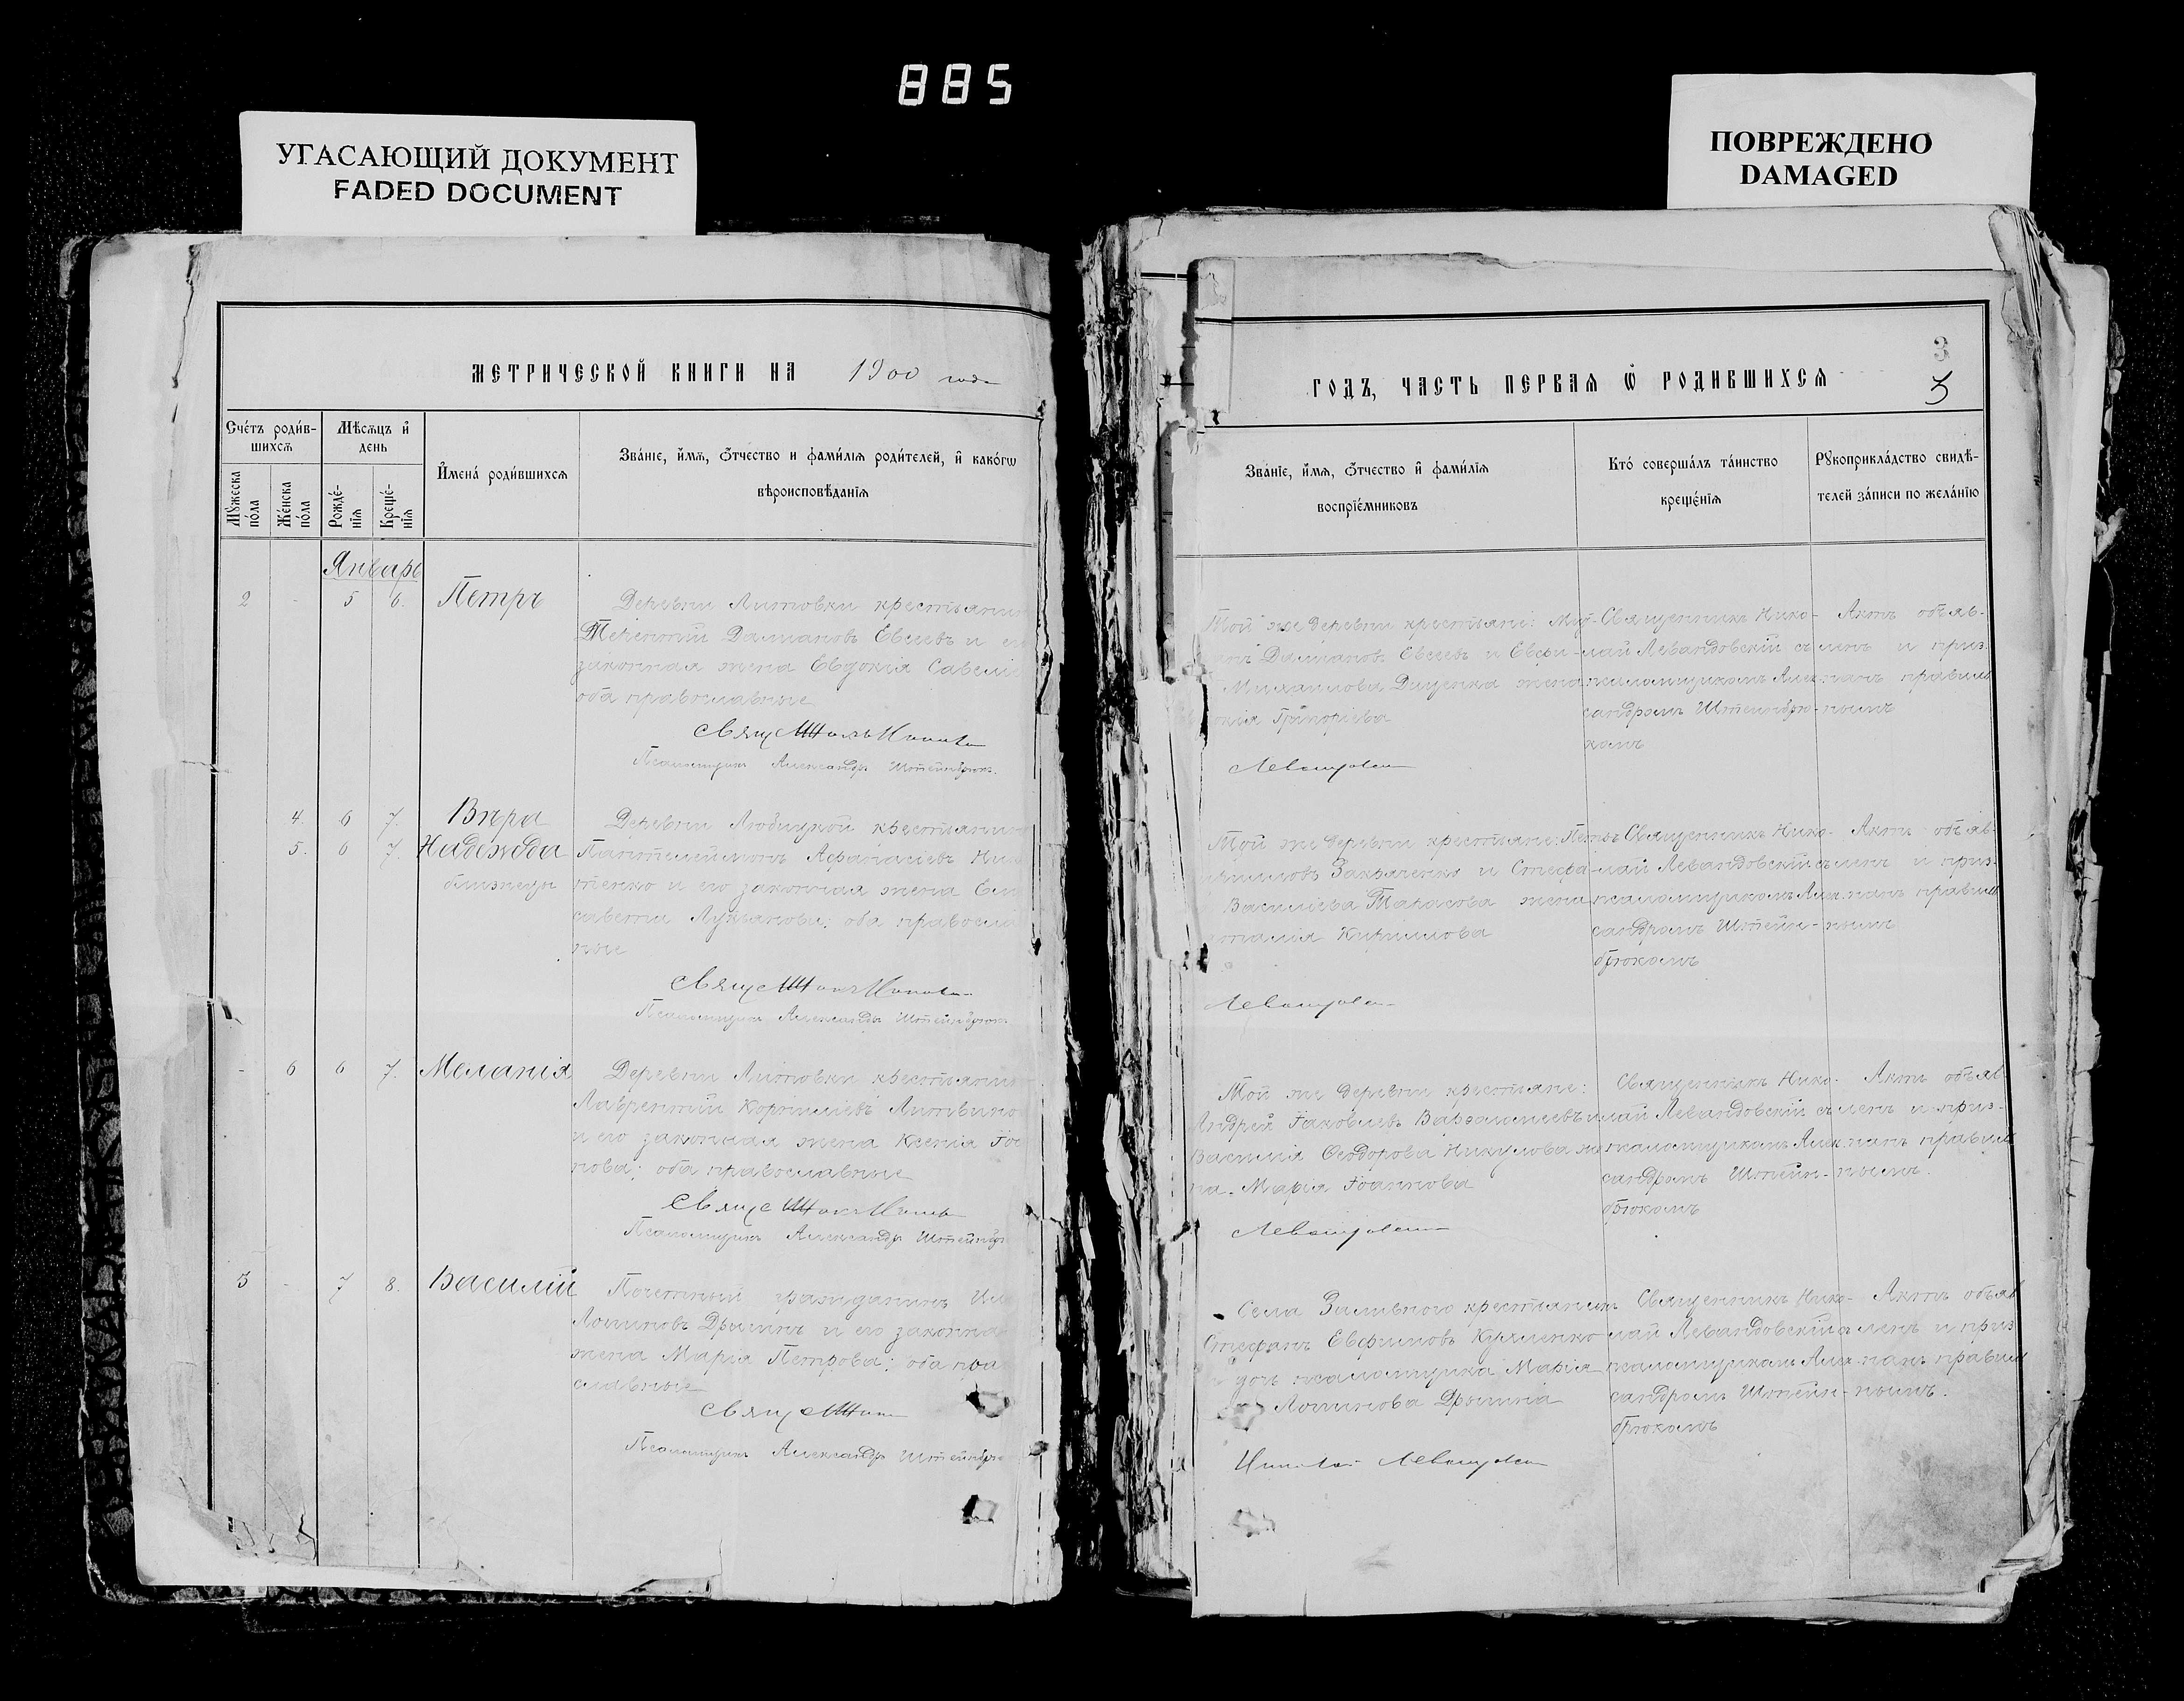 885
УГАСАЮЩИЙ ДОКУМЕНТ
FADED DOCUMENT
ПОВРЕЖДЕНО
DAMAGED
МЕТРИЧЕСКОЙ КНИГИ НА 1900 года
Счéтъ роди́в-
шихсѧ
Мѣсѧцъ и҆
день
Мꙋжеска
по́ла
Же́нска
по́ла
Рожде́-
нїѧ
Креще́-
нїѧ
И҆мена́ роди́вшихсѧ
Зва́нїе, и҆́мѧ, ѻ҆́тчество и фами́лїѧ роди́телей, и҆ како́гѡ
вѣроисповѣ́данїѧ
Январь
2 - 5 6. Петръ
Деревни Литовки крестьянин
Терентій Далматовъ Евсеевъ и ег
законная жена Евдокія Савелі
оба православные
Свящ
Псаломщикъ Александръ Штейнбрюкъ.
4. 6 7. Вѣра
5. 6 7. Надежда
близнецы
Деревни Любицкой крестьянин
Пантелеймонъ Афанасіевъ
тенко и его законная жена Ели
савета Лукьянова; оба правосла
ные
Свящ
Псаломщикъ Александръ Штейнбрюкъ
- 6 6 7. Меланія
Деревни Литовки крестьянин
Лаврентій Корниліевъ Литвино
и его законная жена Ксенія Іоа
нова; оба православные
Свящ
Псаломщикъ Александръ Штейнбрю
3 - 7 8. Василій
Почетный гражданинъ
Логиновъ Дрынинъ и его законна
жена Марія Петрова; оба пра
славные
Свящ
Псаломщикъ Александръ Штейнбрю
3
3
ГОДЪ, ЧАСТЬ ПЕРВАѦ Ѡ҆ РОДИВШИХСѦ
Зва́нїе, и҆́мѧ, ѻ҆́тчество и҆ фами́лїѧ
воспрїе́мниковъ
Кто́ соверша́лъ та́инство
креще́нїѧ
Рꙋкоприкла́дство свидѣ́-
телей за́писи по жела́нїю
Той же деревни крестьяне:
Далматовъ Евсеевъ и Евфи-
Михаилова Диценка жена
Григоріева
Левандовскій
Священникъ Нико-
лай Левандовскій съ
псаломщикомъ Алек-
сандромъ Штейнбрю-
комъ
Актъ объяв-
ленъ и приз-
нанъ правиль
нымъ
Той же деревни крестьяне: Петръ
Захарченко и Стефа-
Василіева Тарасова жена
Кириллова
Левандовскій
Священникъ Нико-
лай Левандовскій съ
псаломщикомъ Алек-
сандромъ Штейн-
брюкомъ
Актъ объяв-
ленъ и приз-
нанъ правил
нымъ
Той же деревни крестьяне:
Андрей Іаковлевъ Варѳоломеевъ и
Василія Ѳеодорова Никулова же
на Марія Іоаннова
Левандовскій
Священникъ Нико-
лай Левандовскій съ
псаломщикомъ Алек-
сандромъ Штейн-
брюкомъ
Актъ объяв
ленъ и приз-
нанъ правил
нымъ.
Села Заливного крестьянинъ
Стефанъ Евфимовъ Куриленко
дочь псаломщика Марія
Логинова Дрынина
Николай Левандовскій
Священникъ Нико-
лай Левандовскій съ
псаломщикомъ Алек-
сандромъ Штейн-
брюкомъ
Актъ объяв
ленъ и приз
нанъ правил
нымъ.